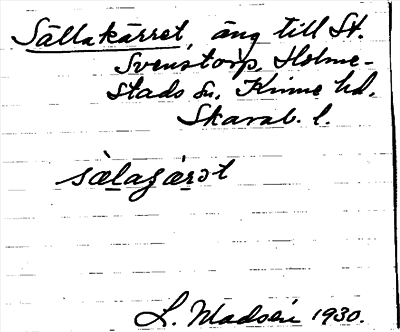 Sällakärret, äng till St.
Svenstorp, Holme-
stads sn. Kinne hd.
Skarab. l.
sàlagǽrət
L. Madsén 1930.